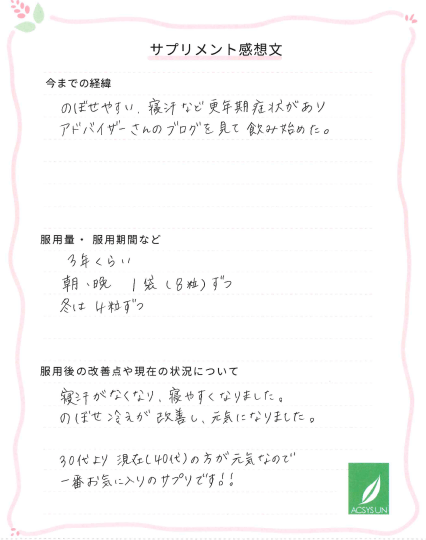 サプリメント感想文
今までの経緯
のぼせやすい、寝汗など更年期症状があり
アドバイザーさんのブログを見て飲み始めた。
服用量・服用期間など
3年くらい
朝、晩 1袋(8粒)ずつ
冬は4粒ずつ
服用後の改善点や現在の状況について
寝汗がなくなり、寝やすくなりました。
のぼせ冷えが改善し、元気になりました。
30代より現在(40代)の方が元気なので
一番お気に入りのサプリです!!
ACSYSUN